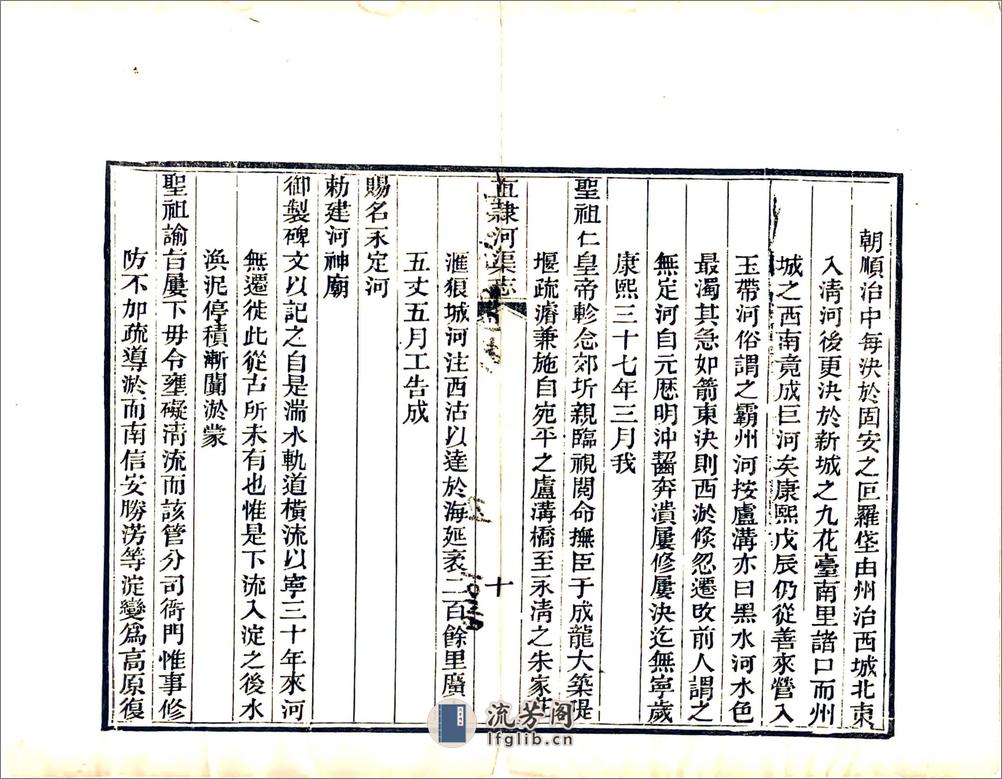 朝順治中每決於固安之叵羅垡由州治西城北東
入清河後更決於新城之九花臺南里諸口而州
城之西南竟成巨河矣康熙戊辰仍從善來營入
玉帶河俗謂之霸州河按盧溝亦曰黑水河水色
最濁其急如箭東決則西淤倐忽遷改前人謂之
無定河自元歴明沖齧奔潰屢修屢決迄無寧歲
康熙三十七年三月我
聖祖仁皇帝軫念郊圻親臨視閱命撫臣于成龍大築堤
堰疏濬兼施自宛平之盧溝橋至永清之朱家莊
直隸河渠志
十
滙狼城河注西沽以達於海延袤二百餘里廣
五丈五月工告成
賜名永定河
勅建河神廟
御製碑文以記之自是湍水軌道橫流以寧三十年來河
無遷徙此從古所未有也惟是下流入淀之後水
渙泥停積漸闐淤蒙
聖祖諭旨屢下毋令壅礙清流而該管分司衙門惟事修
防不加疏導淤而南信安勝芳等淀變為高原復
流芳阁
lfglib.cn